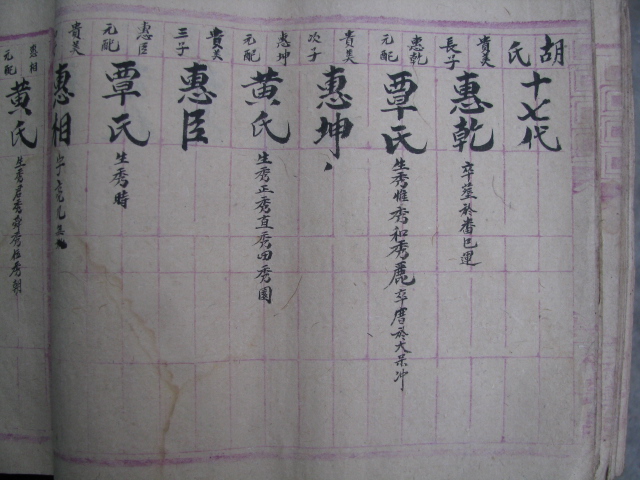 胡氏 十七代
貴美長子 惠乾 卒塟於番巳運
惠乾元配 覃氏 生秀惟秀和秀麗 卒塟於大杲冲
貴美次子 惠坤
惠坤元配 黄氏 生秀正秀直秀田秀園
貴美三子 惠臣
惠臣元配 覃氏 生秀時
貴美 惠相 字
惠相元配 黄氏 生秀君秀舜秀柱秀朝